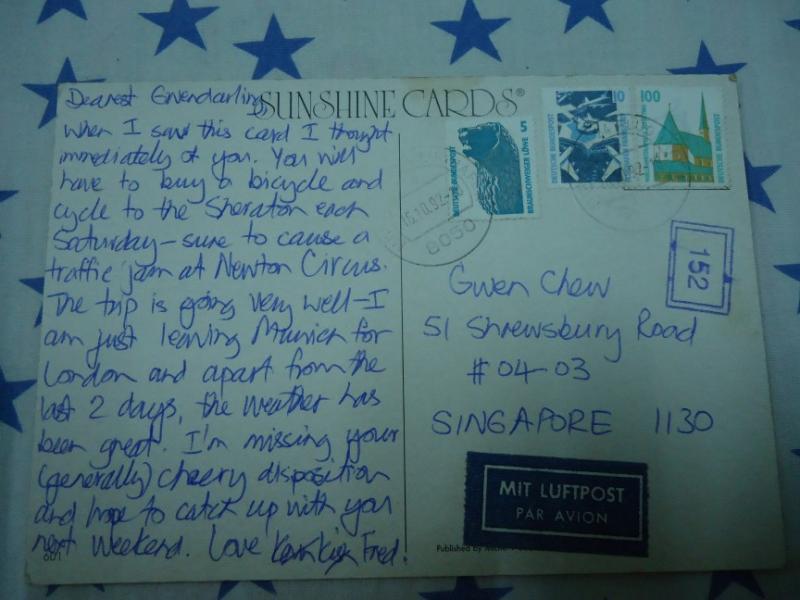 Dearest Gwendarling,
SUNSHINE CARDS®
When I saw this card I thought
immediately of you. You will
have to buy a bicycle and
cycle to the Sheraton each
Saturday – sure to cause a
traffic jam at Newton Circus.
The trip is going very well – I
am just leaving Munich for
London and apart from the
last 2 days, the weather has
been great. I'm missing your
(generally) cheery disposition
and hope to catch up with you
next weekend. Love Fred!
601
Published by
DEUTSCHE BUNDESPOST
5
BRAUNSCHWEIGER LÖWE
10
DEUTSCHE BUNDESPOST
100
DEUTSCHE BUNDESPOST
16.10.92
8050
152
Gwen Chew
51 Shrewsbury Road
#04-03
SINGAPORE 1130
MIT LUFTPOST
PAR AVION